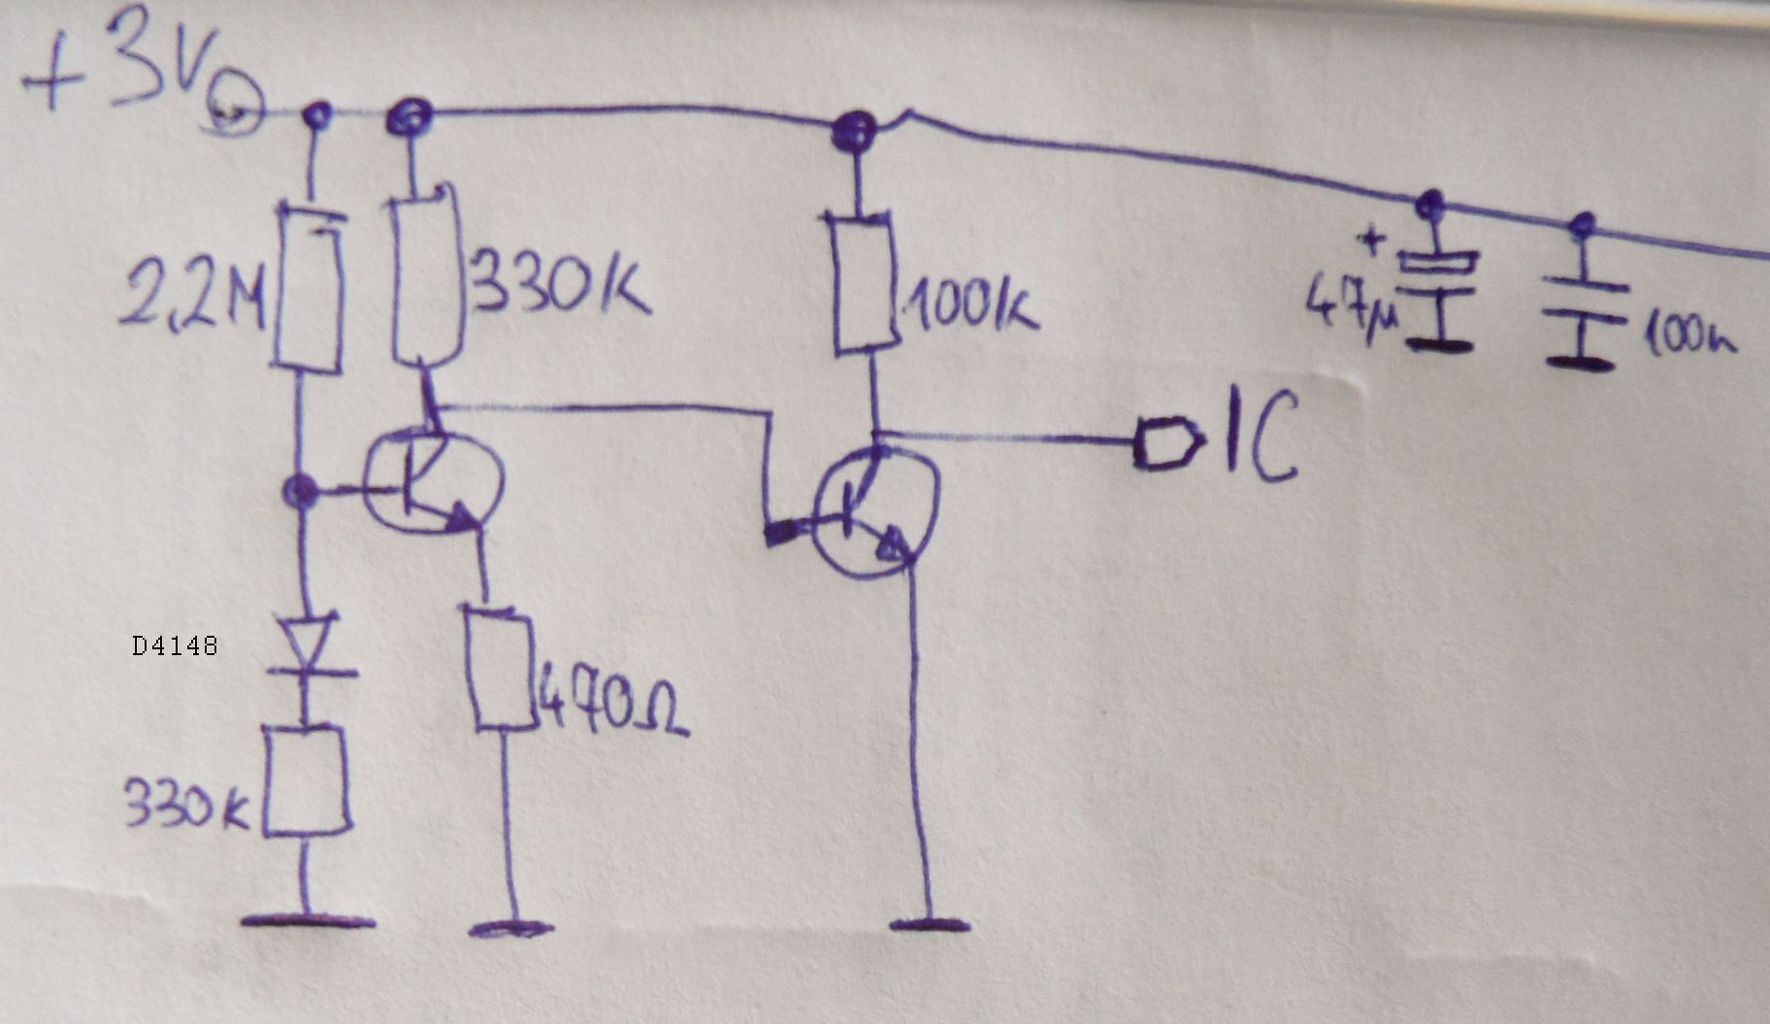 +3V
2,2M
330K
100K
+
47µ
100n
IC
D4148
470Ω
330K